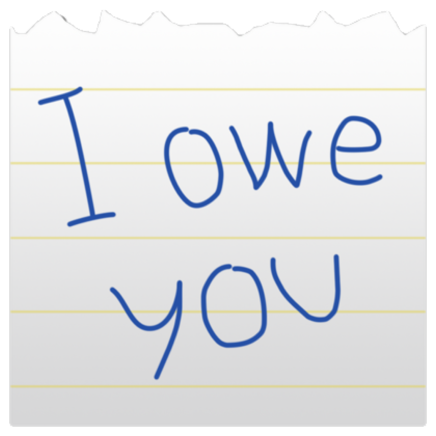 I owe
you